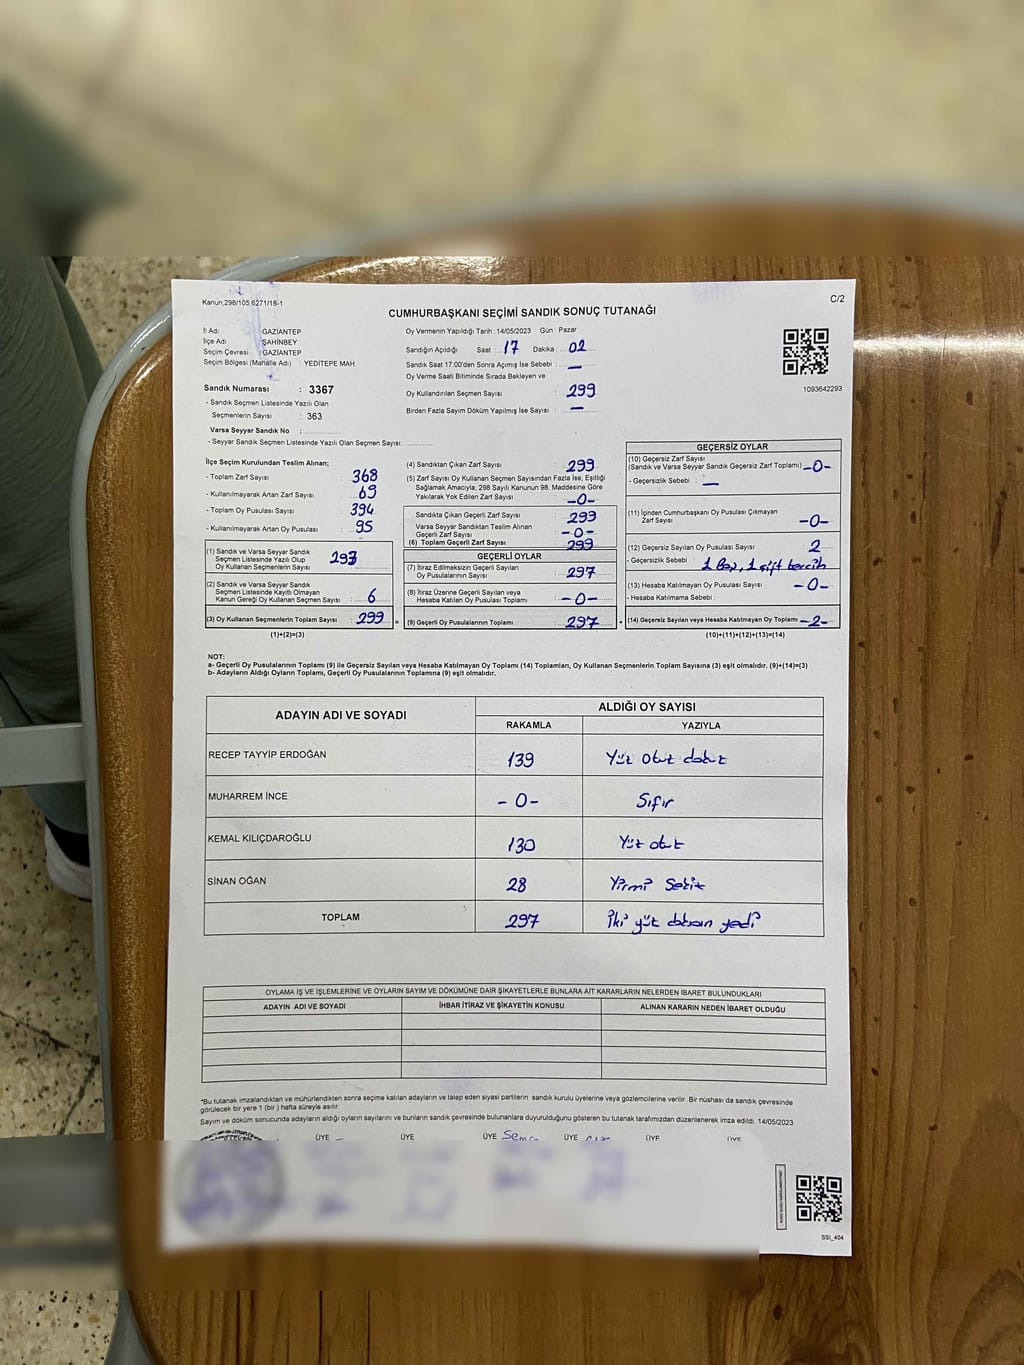 Kanun,298/105,6271/18-1
C/2
CUMHURBAŞKANI SEÇİMİ SANDIK SONUÇ TUTANAĞI
İl Adı : GAZİANTEP
İlçe Adı : ŞAHİNBEY
Seçim Çevresi : GAZİANTEP
Seçim Bölgesi (Mahalle Adı) : YEDİTEPE MAH
Sandık Numarası : 3367
- Sandık Seçmen Listesinde Yazılı Olan
Seçmenlerin Sayısı : 363
Varsa Seyyar Sandık No :
- Seyyar Sandık Seçmen Listesinde Yazılı Olan Seçmen Sayısı:
Oy Vermenin Yapıldığı Tarih : 14/05/2023 Gün : Pazar
Sandığın Açıldığı Saat : 17 Dakika : 02
Sandık Saat 17:00'den Sonra Açımış İse Sebebi : —
Oy Verme Saati Bitiminde Sırada Bekleyen ve
Oy Kullandırılan Seçmen Sayısı : 299
Birden Fazla Sayım Döküm Yapılmış İse Sayısı : —
1093642293
İlçe Seçim Kurulundan Teslim Alınan;
- Toplam Zarf Sayısı : 368
- Kullanılmayarak Artan Zarf Sayısı : 69
- Toplam Oy Pusulası Sayısı : 394
- Kullanılmayarak Artan Oy Pusulası : 95
(1) Sandık ve Varsa Seyyar Sandık
Seçmen Listesinde Yazılı Olup
Oy Kullanan Seçmenlerin Sayısı : 293
(2) Sandık ve Varsa Seyyar Sandık
Seçmen Listesinde Kayıtlı Olmayan
Kanun Gereği Oy Kullanan Seçmen Sayısı : 6
(3) Oy Kullanan Seçmenlerin Toplam Sayısı : 299
(1)+(2)=(3)
(4) Sandıktan Çıkan Zarf Sayısı : 299
(5) Zarf Sayısı Oy Kullanan Seçmen Sayısından Fazla İse, Eşitliği
Sağlamak Amacıyla, 298 Sayılı Kanunun 98. Maddesine Göre
Yakılarak Yok Edilen Zarf Sayısı : -0-
Sandıkta Çıkan Geçerli Zarf Sayısı : 299
Varsa Seyyar Sandıktan Teslim Alınan
Geçerli Zarf Sayısı : -0-
(6) Toplam Geçerli Zarf Sayısı : 299
GEÇERLİ OYLAR
(7) İtiraz Edilmeksizin Geçerli Sayılan
Oy Pusulalarının Sayısı : 297
(8) İtiraz Üzerine Geçerli Sayılan veya
Hesaba Katılan Oy Pusulası Toplamı : -0-
(9) Geçerli Oy Pusulalarının Toplamı : 297
GEÇERSİZ OYLAR
(10) Geçersiz Zarf Sayısı
(Sandık ve Varsa Seyyar Sandık Geçersiz Zarf Toplamı) -0-
- Geçersizlik Sebebi : —
(11) İçinden Cumhurbaşkanı Oy Pusulası Çıkmayan
Zarf Sayısı -0-
(12) Geçersiz Sayılan Oy Pusulası Sayısı : 2
- Geçersizlik Sebebi : 1 Boş, 1 çift tercih
(13) Hesaba Katılmayan Oy Pusulası Sayısı : -0-
- Hesaba Katılmama Sebebi :
(14) Geçersiz Sayılan veya Hesaba Katılmayan Oy Toplamı -2-
(10)+(11)+(12)+(13)=(14)
NOT:
a- Geçerli Oy Pusulalarının Toplamı (9) ile Geçersiz Sayılan veya Hesaba Katılmayan Oy Toplamı (14) Toplamları, Oy Kullanan Seçmenlerin Toplam Sayısına (3) eşit olmalıdır. (9)+(14)=(3)
b- Adayların Aldığı Oyların Toplamı, Geçerli Oy Pusulalarının Toplamına (9) eşit olmalıdır.
ADAYIN ADI VE SOYADI
ALDIĞI OY SAYISI
RAKAMLA YAZIYLA
RECEP TAYYİP ERDOĞAN 139 Yüz otuz dokuz
MUHARREM İNCE - 0 - Sıfır
KEMAL KILIÇDAROĞLU 130 Yüz otuz
SİNAN OĞAN 28 Yirmi Sekiz
TOPLAM 297 İki yüz doksan yedi
OYLAMA İŞ VE İŞLEMLERİNE VE OYLARIN SAYIM VE DÖKÜMÜNE DAİR ŞİKAYETLERLE BUNLARA AİT KARARLARIN NELERDEN İBARET BULUNDUKLARI
ADAYIN ADI VE SOYADI İHBAR İTİRAZ VE ŞİKAYETİN KONUSU ALINAN KARARIN NEDEN İBARET OLDUĞU
*Bu tutanak imzalandıktan ve mühürlendikten sonra seçime katılan adayların ve talep eden siyasi partilerin sandık kurulu üyelerine veya gözlemcilerine verilir. Bir nüshası da sandık çevresinde
görülecek bir yere 1 (bir ) hafta süreyle asılır.
Sayım ve döküm sonucunda adayların aldığı oyların sayılarını ve bunların sandık çevresinde bulunanlara duyurulduğunu gösteren bu tutanak tarafımızdan düzenlenerek imza edildi. 14/05/2023
ÜYE ÜYE ÜYE ÜYE ÜYE ÜYE
SSI_404